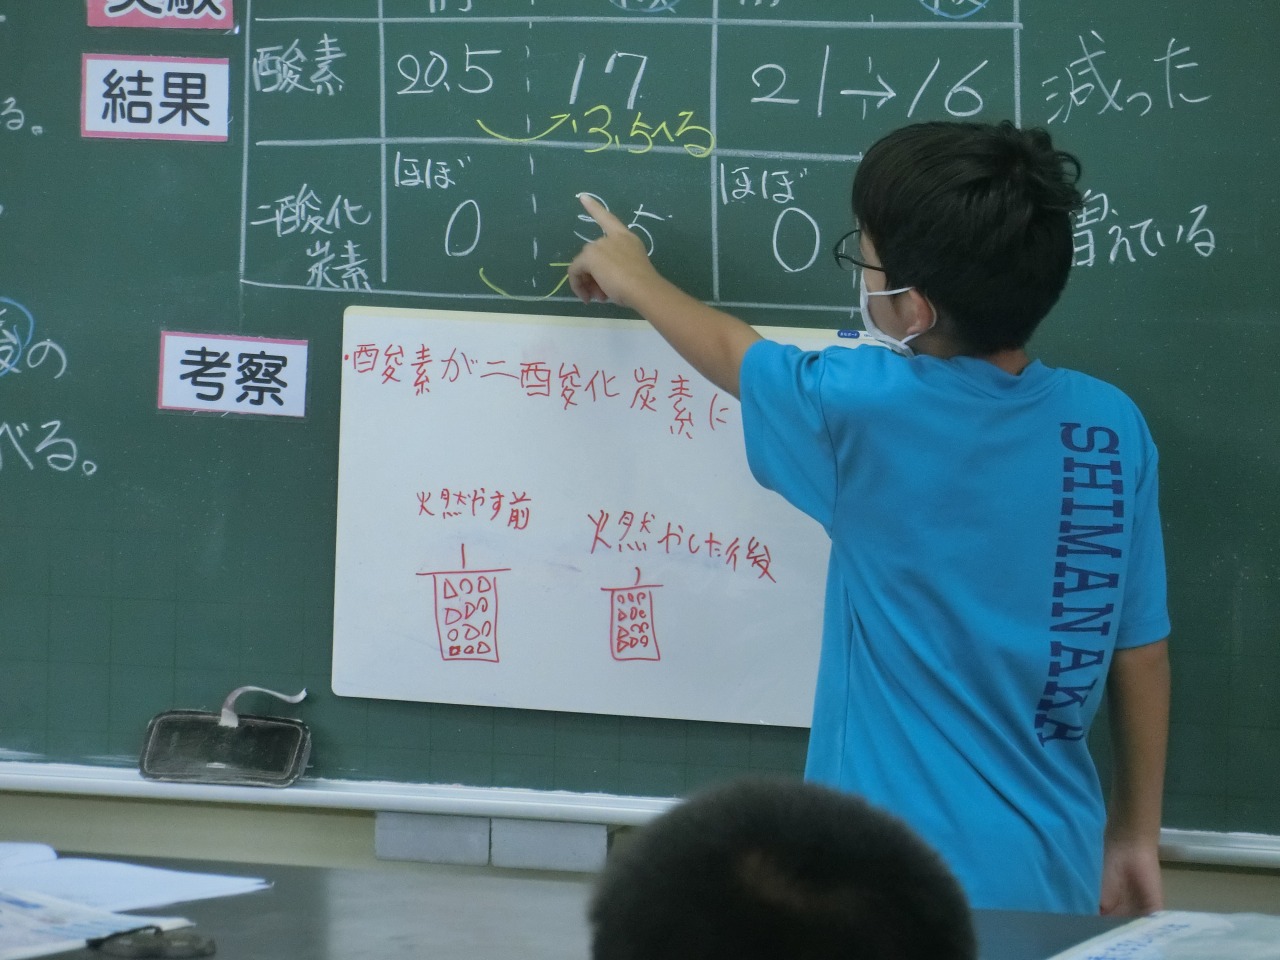 実験
結果
酸素 20.5 17 21→16 減った
3.5へる
ほぼ ほぼ
二酸化炭素 0 3.5 0 増えている
る。
後の
べる。
考察
・酸素が二酸化炭素に
火然やす前 火然やした後
SHIMANAKA